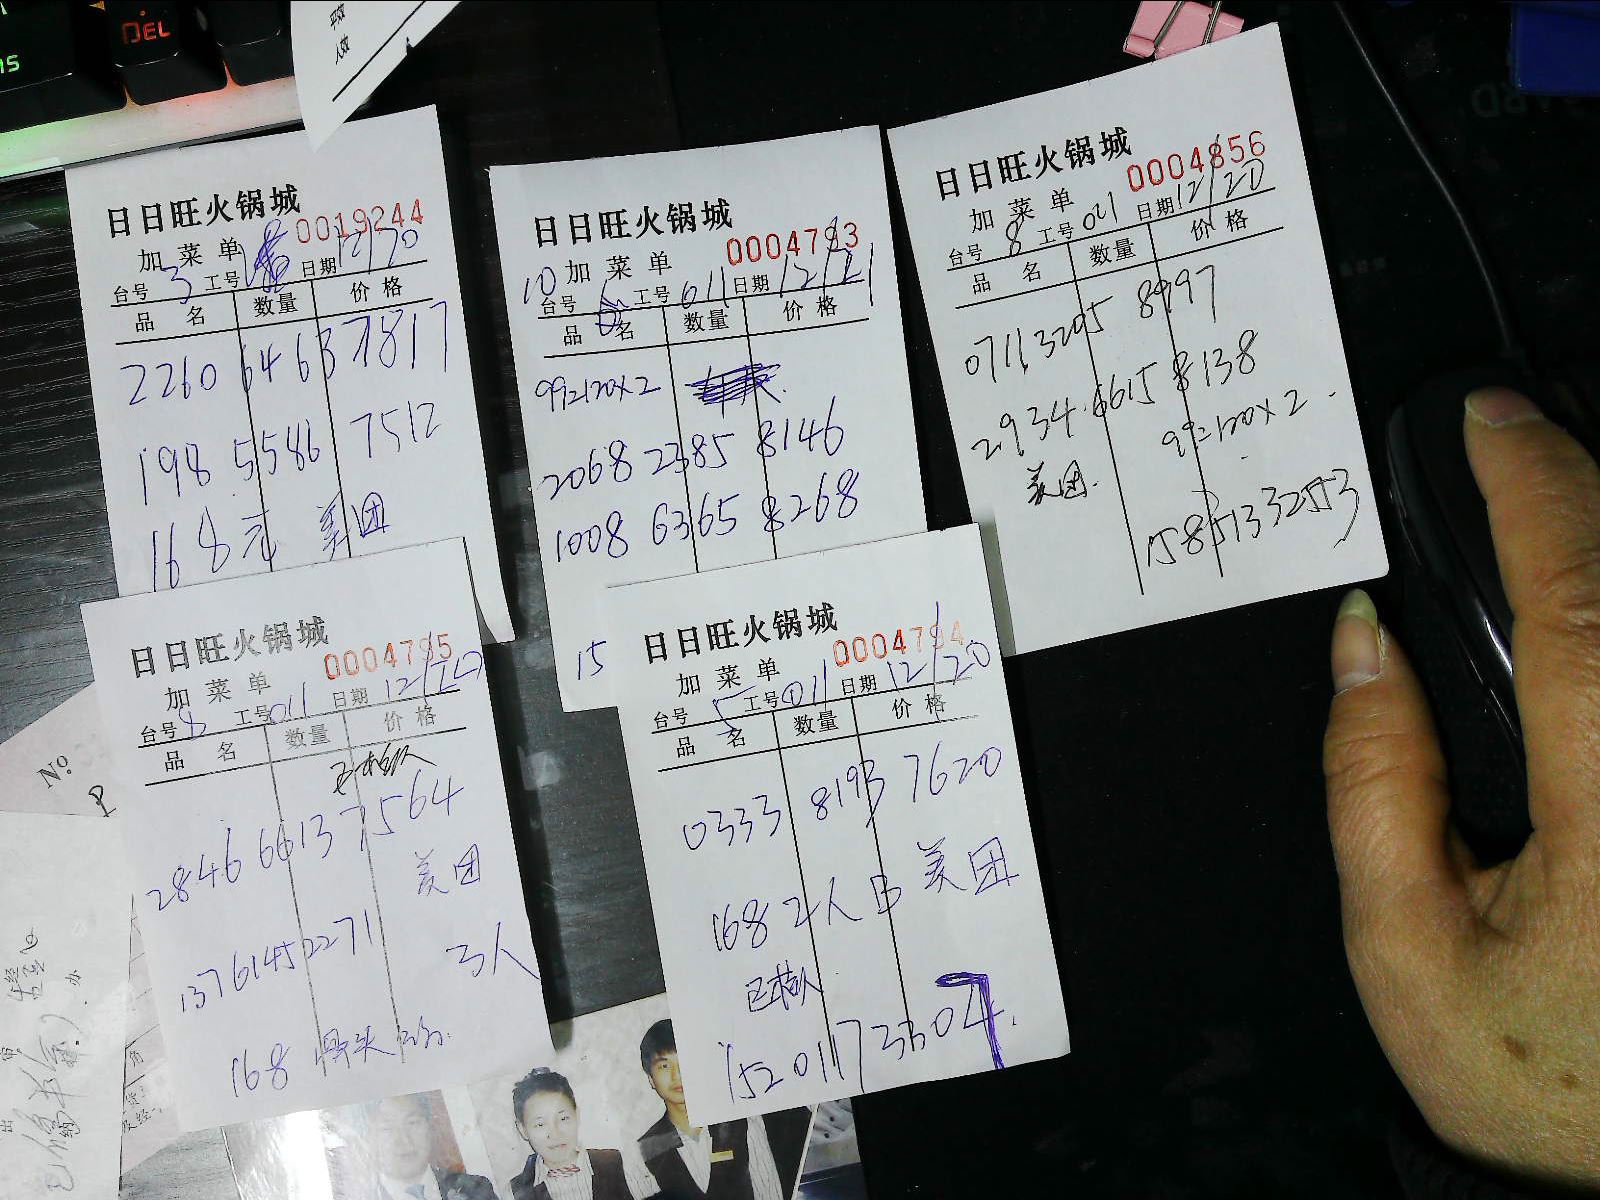 DEL
平效
人效
日日旺火锅城
0019244
加菜单
台号 3 工号 日期 12/20
品名 数量 价格
2260 6463 7817
198 5586 7512
168元 美团
日日旺火锅城
0004793
10 加菜单
台号 工号 011 日期 12/21
品名 数量 价格
99=120×2
2068 2385 8146
1008 6365 8268
15
日日旺火锅城
0004856
加菜单
台号 8 工号 021 日期 12/20
品名 数量 价格
0711 3205 8997
2934 6615 8138
美团. 99=120×2
15851332553
日日旺火锅城
0004795
加菜单
台号 8 工号 011 日期 12/20
品名 数量 价格
2846 6613 7564
美团
13761452271 3人
168 骨头
日日旺火锅城
0004794
加菜单
台号 5 工号 011 日期 12/20
品名 数量 价格
0333 8193 7620
168 2人 B 美团
15201173304.
No.
P